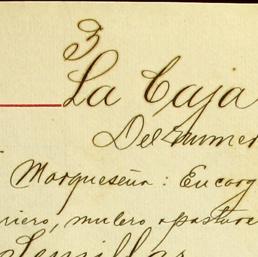 3
La Caja
Del
Marqueseña: Encarg
mulero o pastore
Semillas